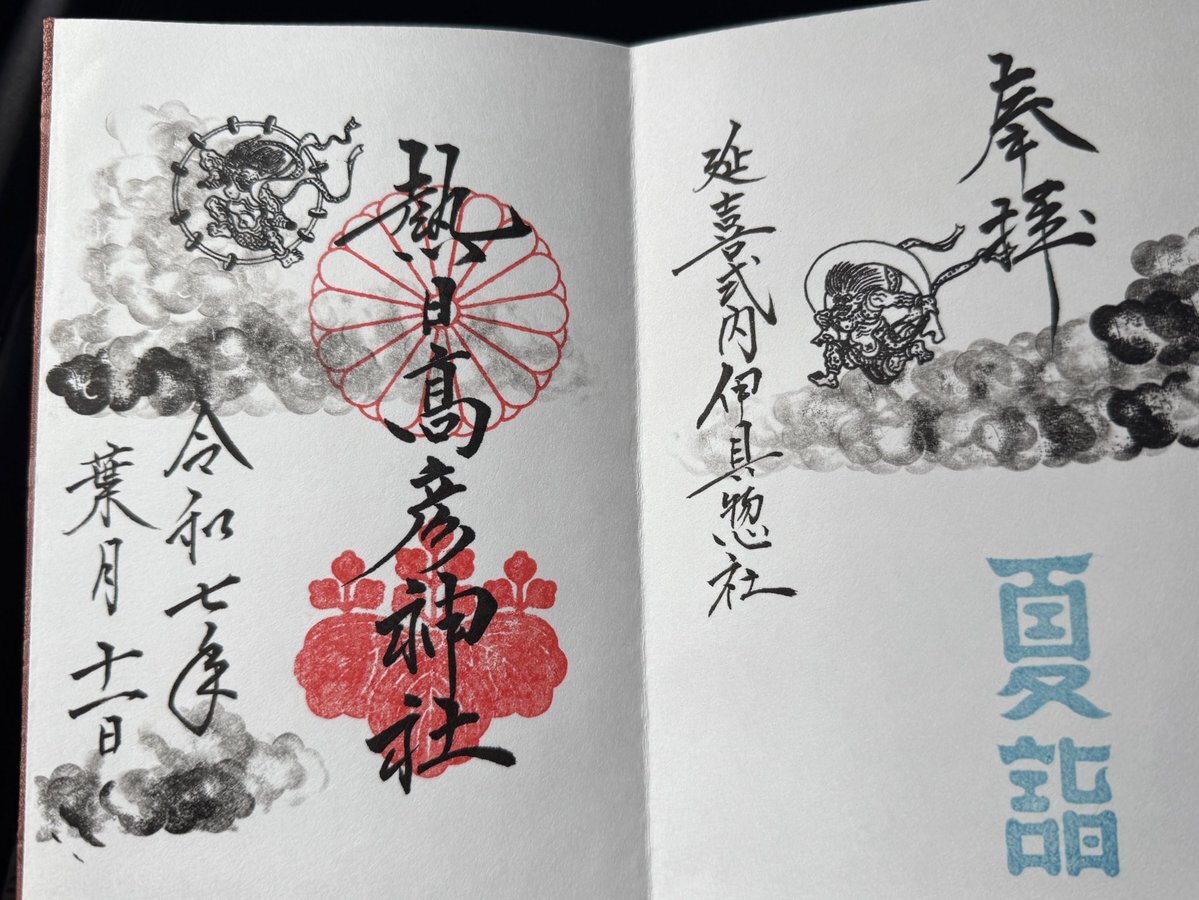 奉拝
延喜式内伊具惣社
夏詣
熱日高彦神社
令和七年
葉月十一日